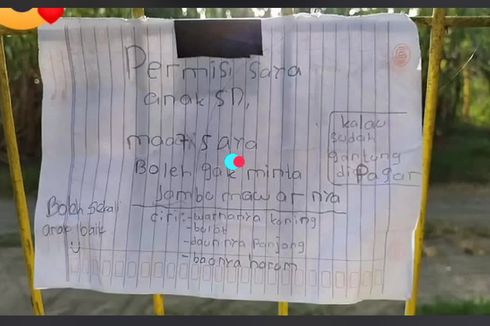 Permisi saya
anak SD,
maaf saya
Boleh gak minta
Jambu mawar nya
kalau
sudah
gantung
di Pagar
Boleh sekali
anak baik
ciri:-warnanya kuning
-bulat
-daunnya panjang
-baonya harom